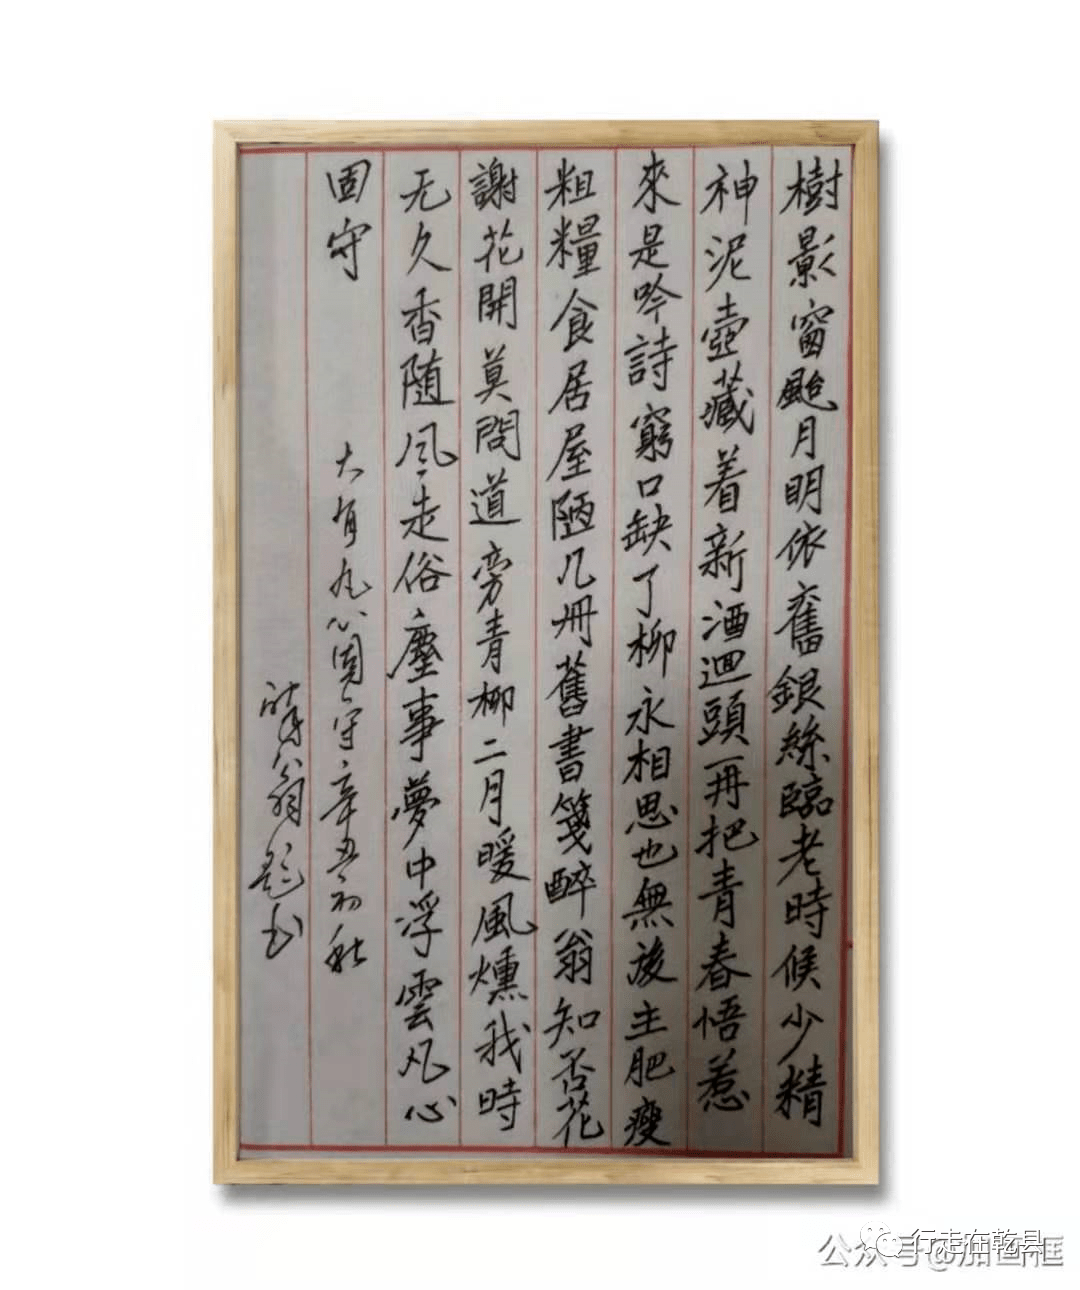 樹影窗颱月明依舊銀絲臨老時候少精
神泥壺藏着新酒迴頭再把青春悟惹
來是吟詩窮口缺了柳永相思也無後主肥瘦
粗糧食居屋陋几冊舊書箋醉翁知否花
謝花開莫問道旁青柳二月暖風燻我時
无久香随风走俗塵事夢中浮雲凡心
固守
大有凡心固守辛丑初秋
翁題书
行走在乾县
公众号